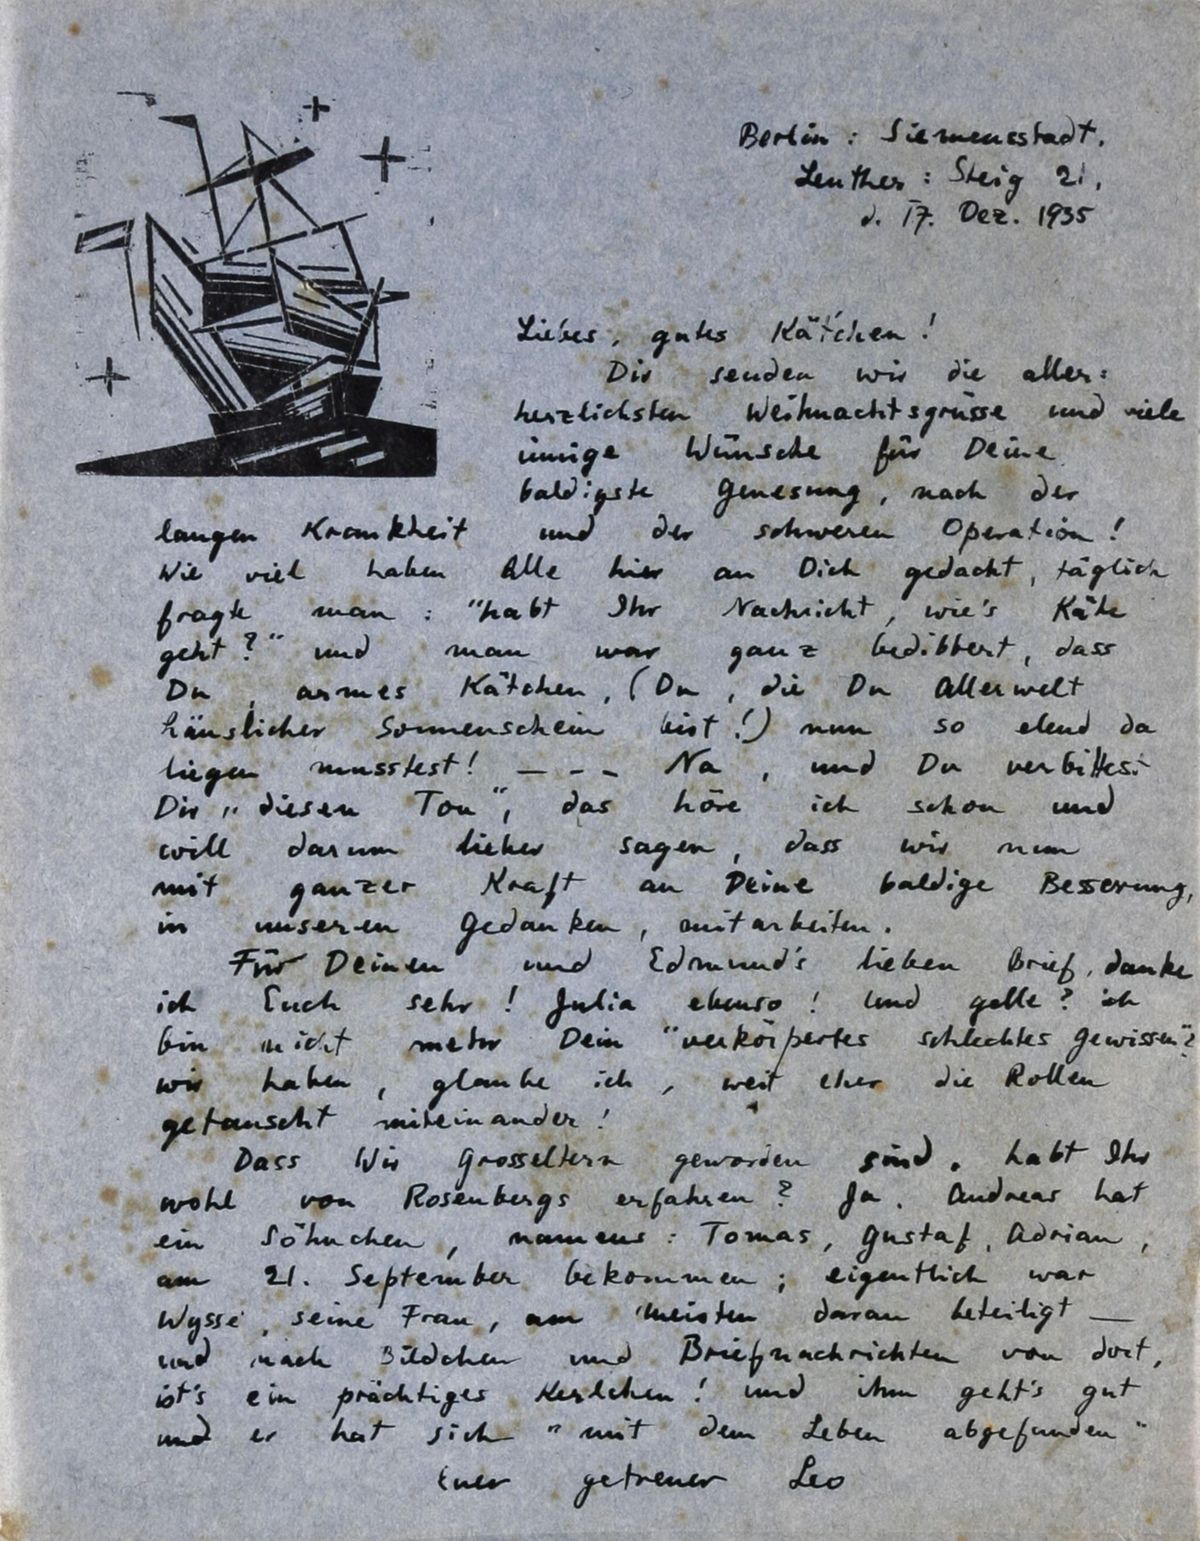 Berlin : Siemensstadt.
Lenther : Steig 21.
d. 17. Dez. 1935
Liebes, gutes Kätchen!
Dir senden wir die aller:
herzlichsten Weihnachtsgrüsse und viele
innige Wünsche für Deine
baldigste Genesung, nach der
langen Krankheit und der schweren Operation!
Wie viel haben Alle hier an Dich gedacht, täglich
fragte man : "habt Ihr Nachricht, wie's Käte
geht?" und man war ganz bedibbert, dass
Du, armes Kätchen, (Du, die Du Allerwelt
häuslicher Sonnenschein bist!) nun so elend da
liegen musstest! _ _ _ _ Na, und Du verbittest
Dir "diesen Ton", das höre ich schon und
will darum lieber sagen, dass wir nun
mit ganzer Kraft an Deine baldige Besserung,
in unseren Gedanken, mitarbeiten.
Für Deinen und Edmund's lieben Brief, danke
ich Euch sehr! Julia ebenso! Und gelle? ich
bin nicht mehr Dein "verkörpertes schlechtes Gewissen"?
wir haben, glaube ich, weit eher die Rollen
getauscht miteinander!
Dass Wir Grosseltern geworden sind, habt Ihr
wohl von Rosenbergs erfahren? Ja. Andreas hat
ein Söhnchen, namens : Tomas, Gustaf, Adrian,
am 21. September bekommen; eigentlich war
Wysse, seine Frau, am meisten daran beteiligt —
und nach Bildchen und Briefnachrichten von dort,
ist's ein prächtiges Kerlchen! und ihm geht's gut
und er hat sich "mit dem Leben abgefunden"
Euer getreuer Leo